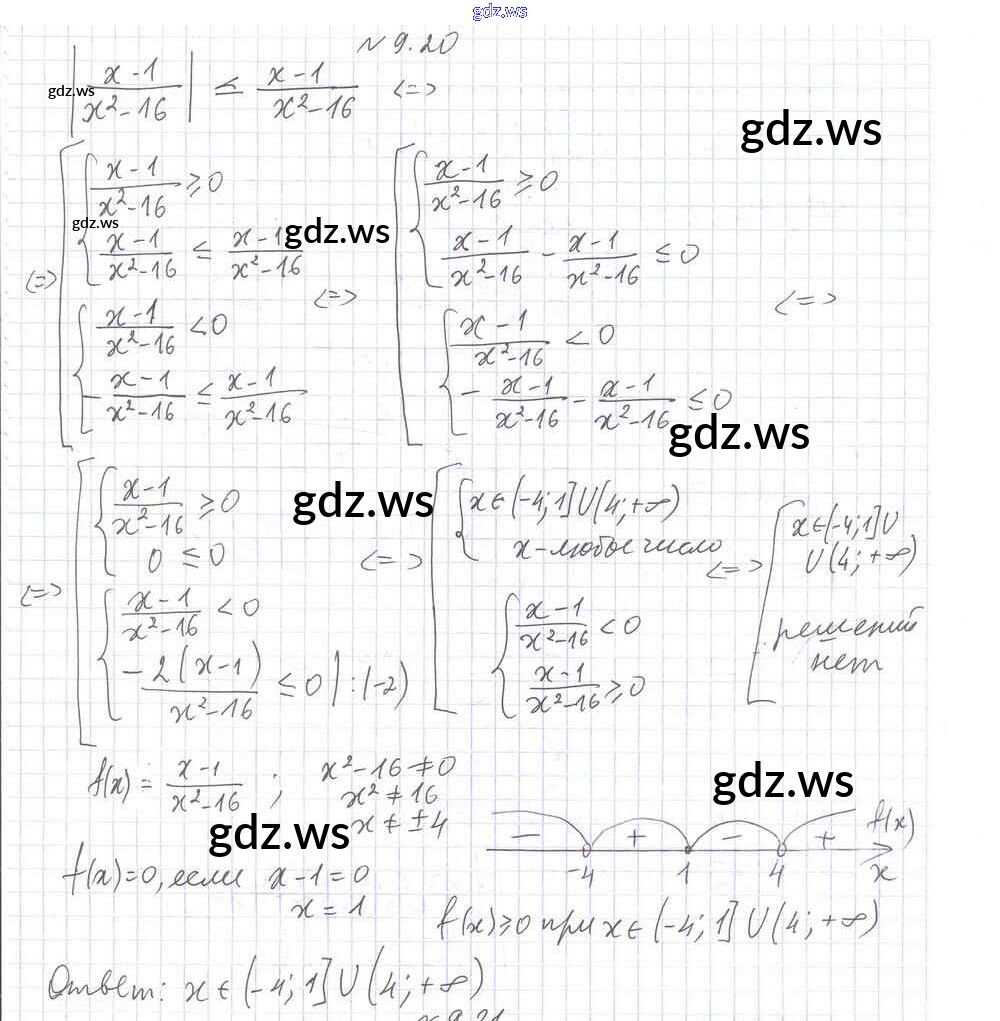 gdz.ws
N 9.20
|(x-1)/(x²-16)| ≤ (x-1)/(x²-16) <=>
gdz.ws
gdz.ws
<=> [ { (x-1)/(x²-16) ≥ 0
(x-1)/(x²-16) ≤ (x-1)/(x²-16)
{ (x-1)/(x²-16) < 0
-(x-1)/(x²-16) ≤ (x-1)/(x²-16)
gdz.ws
gdz.ws
<=> [ { (x-1)/(x²-16) ≥ 0
(x-1)/(x²-16) - (x-1)/(x²-16) ≤ 0
{ (x-1)/(x²-16) < 0
-(x-1)/(x²-16) - (x-1)/(x²-16) ≤ 0
<=>
gdz.ws
<=> [ { (x-1)/(x²-16) ≥ 0
0 ≤ 0
{ (x-1)/(x²-16) < 0
-2(x-1)/(x²-16) ≤ 0 | :(-2)
gdz.ws
<=> [ { x∈(-4;1]U(4;+∞)
x-любое число
{ (x-1)/(x²-16) < 0
(x-1)/(x²-16) ≥ 0
<=> [ x∈(-4;1]U
U(4;+∞)
решений
нет
f(x) = (x-1)/(x²-16) ; x²-16≠0
x²≠16
x≠±4
gdz.ws
gdz.ws
f(x)=0, если x-1=0
x=1
- + - + f(x)
-4 1 4 x
f(x)≥0 при x∈(-4;1]U(4;+∞)
Ответ: x∈(-4;1]U(4;+∞)
N 9.21